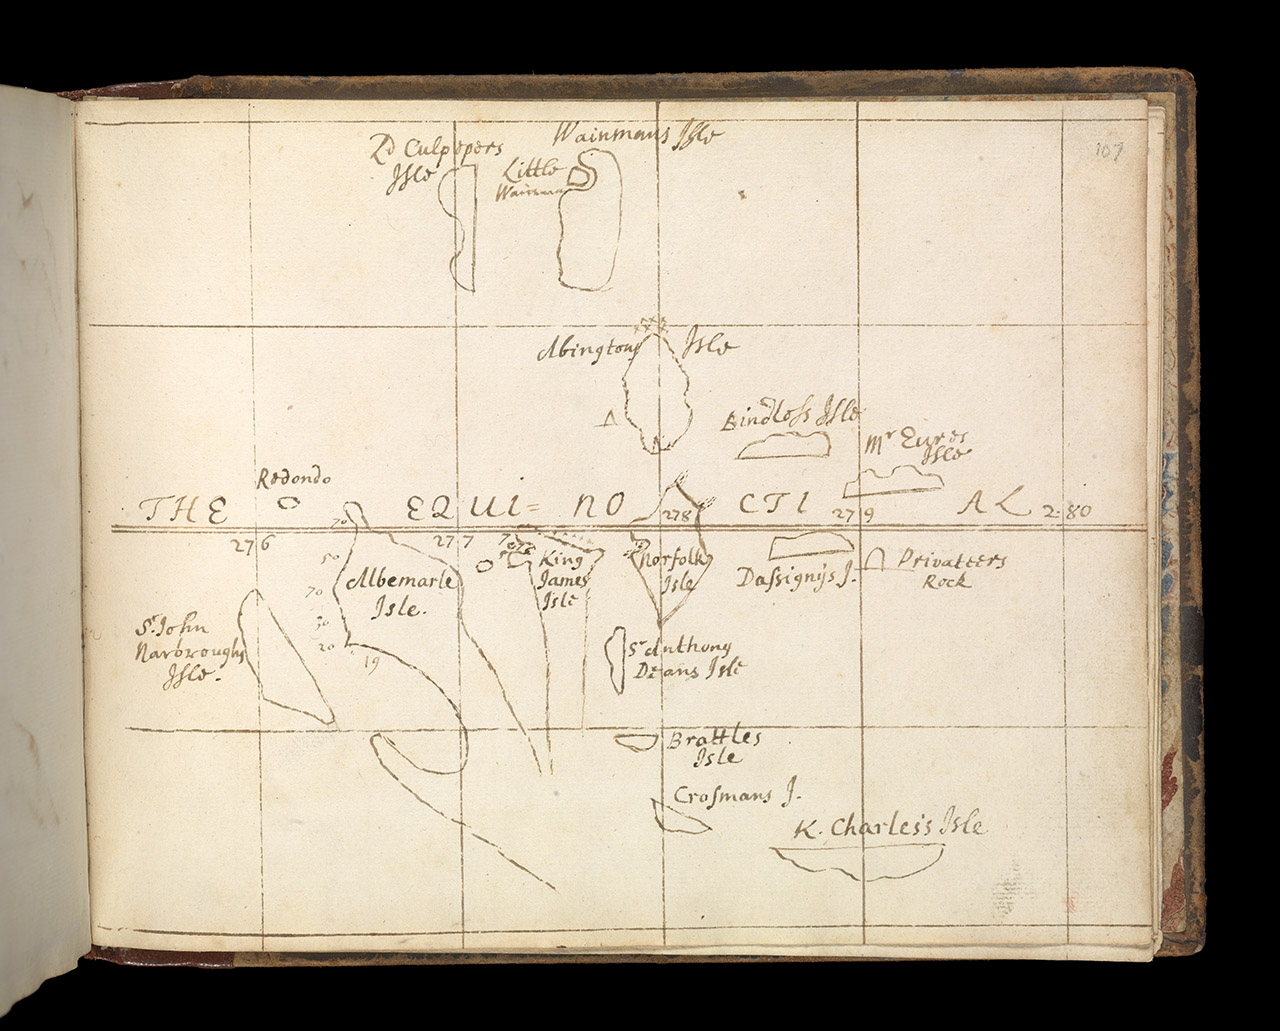 107
Ld Culpepers
Isle
Wainmans Isle
Little
Abington Isle
Bindloss Isle
Mr Eures
Isle
Redondo
THE EQUI= NO CTI AL
276 277 278 279 280
70
50
70
30
20
19
Albemarle
Isle.
70
King
James
Isle
Norfolk
Isle
Dassignys I.
Privateers
Rock
Sr. John
Narbroughs
Isle.
Sr Anthony
Deans Isle
Brattles
Isle
Crosmans I.
K. Charles's Isle